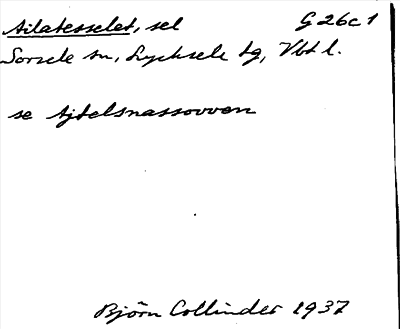 Ailatesselet, sel G 26c1
Sorsele sn, Lycksele tg, Vbt l.
se Ajtelsnassovven
Björn Collinder 1937